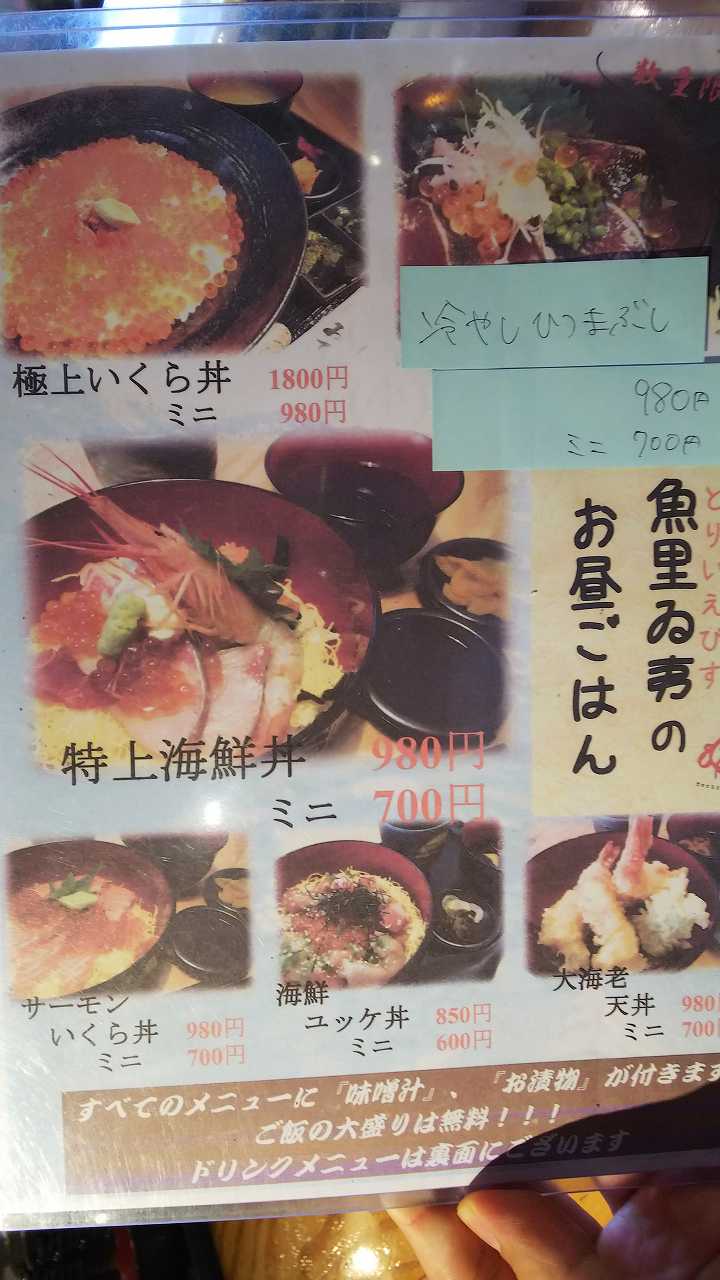 数量限
極上いくら丼 1800円
ミニ 980円
冷やしひつまぶし
980円
ミニ 700円
とりいえびす
魚里ゐ夷の
お昼ごはん
特上海鮮丼 980円
ミニ 700円
サーモン
いくら丼 980円
ミニ 700円
海鮮
ユッケ丼 850円
ミニ 600円
大海老
天丼 980円
ミニ 700
すべてのメニューに『味噌汁』、『お漬物』が付きます
ご飯の大盛りは無料！！！
ドリンクメニューは裏面にございます